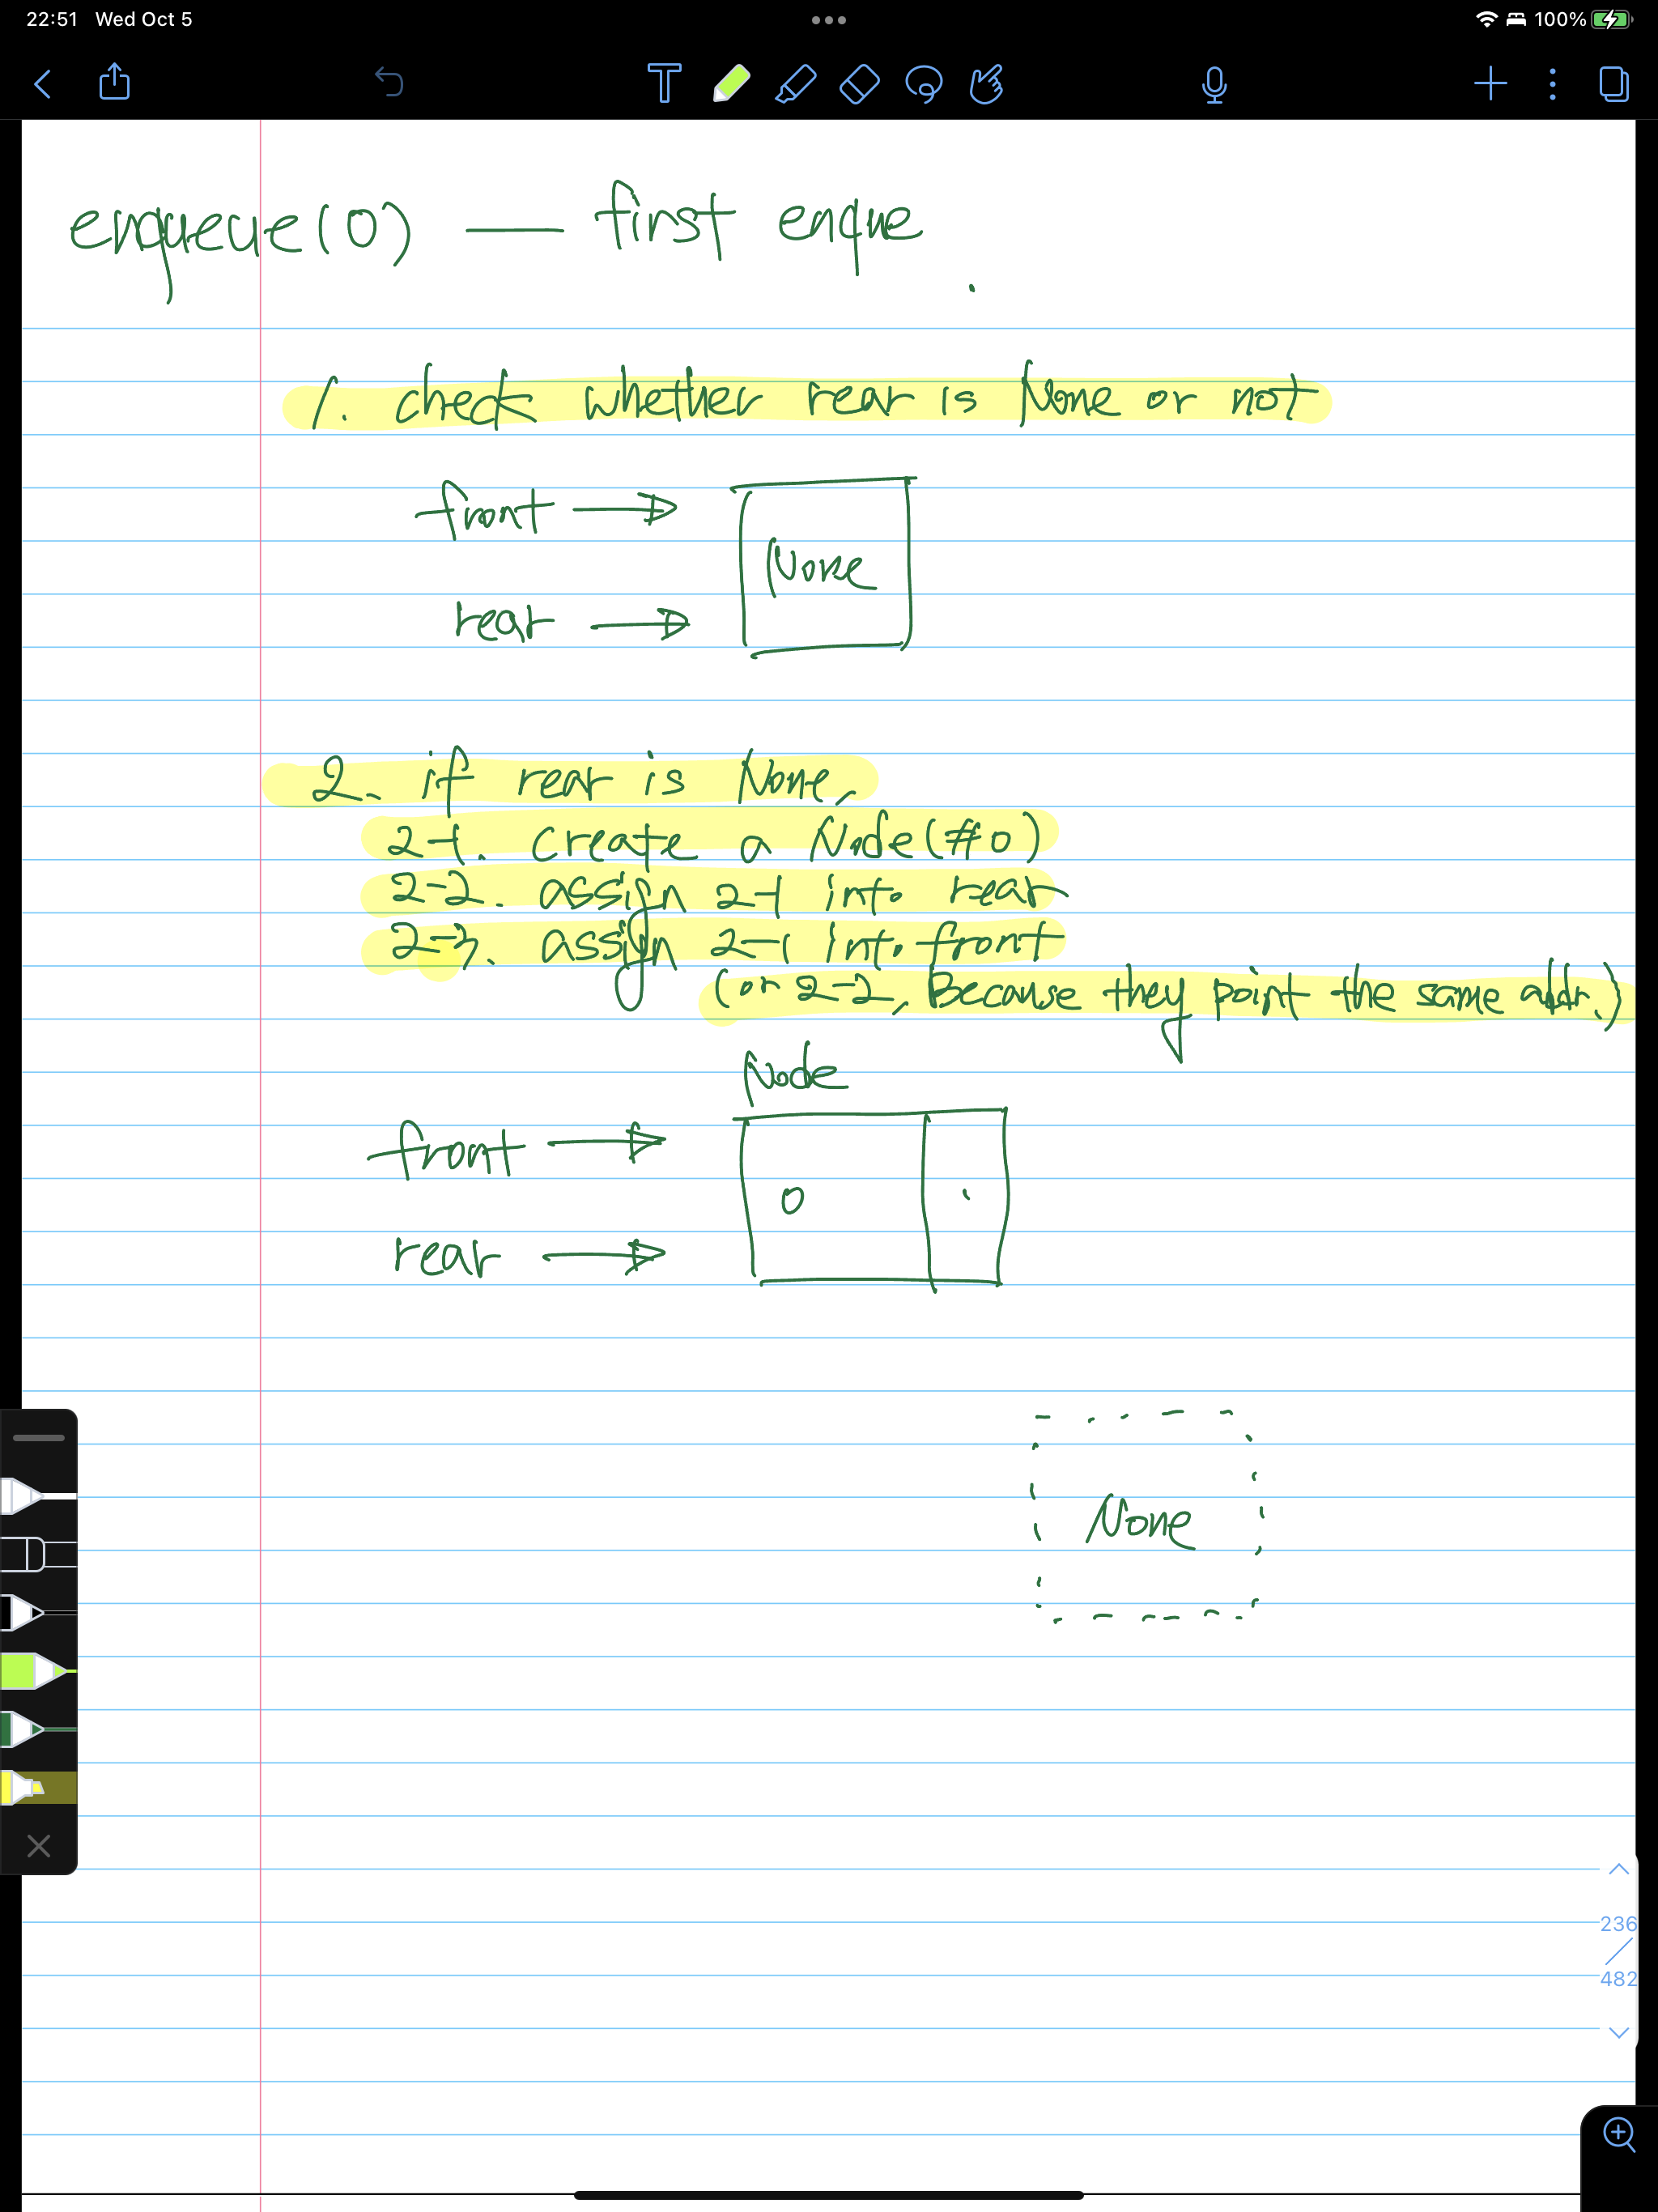 22:51 Wed Oct 5
100%
enqueue(0) — first enque.
1. check whether rear is None or not
front →
None
rear →
2. if rear is None,
2-1. create a Node(#0)
2-2. assign 2-1 into rear
2-3. assign 2-1 into front
(or 2-2, Because they point the same addr.)
Node
front →
0
rear →
None
236
482